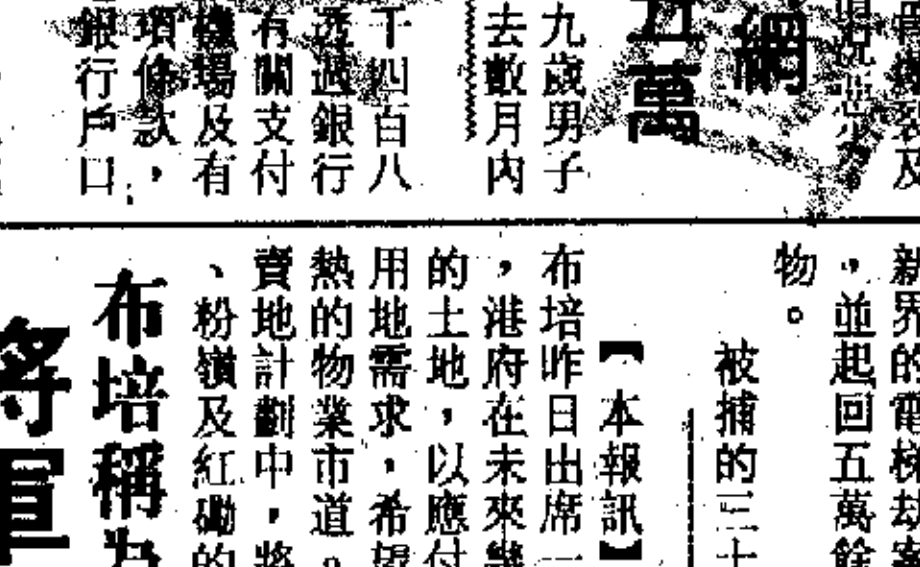 裂及
網
五萬
九歲男子
去數月內
千四百八
透過銀行
有關支付
機場及有
項條款，
銀行戶口
新界的電梯劫案
，並起回五萬餘
物。
被捕的三十
【本報訊】
布培昨日出席一
，港府在未來幾
的土地，以應付
用地需求，希望
熱的物業市道。
賣地計劃中，將
、粉嶺及紅磡的
布培稱為
將軍